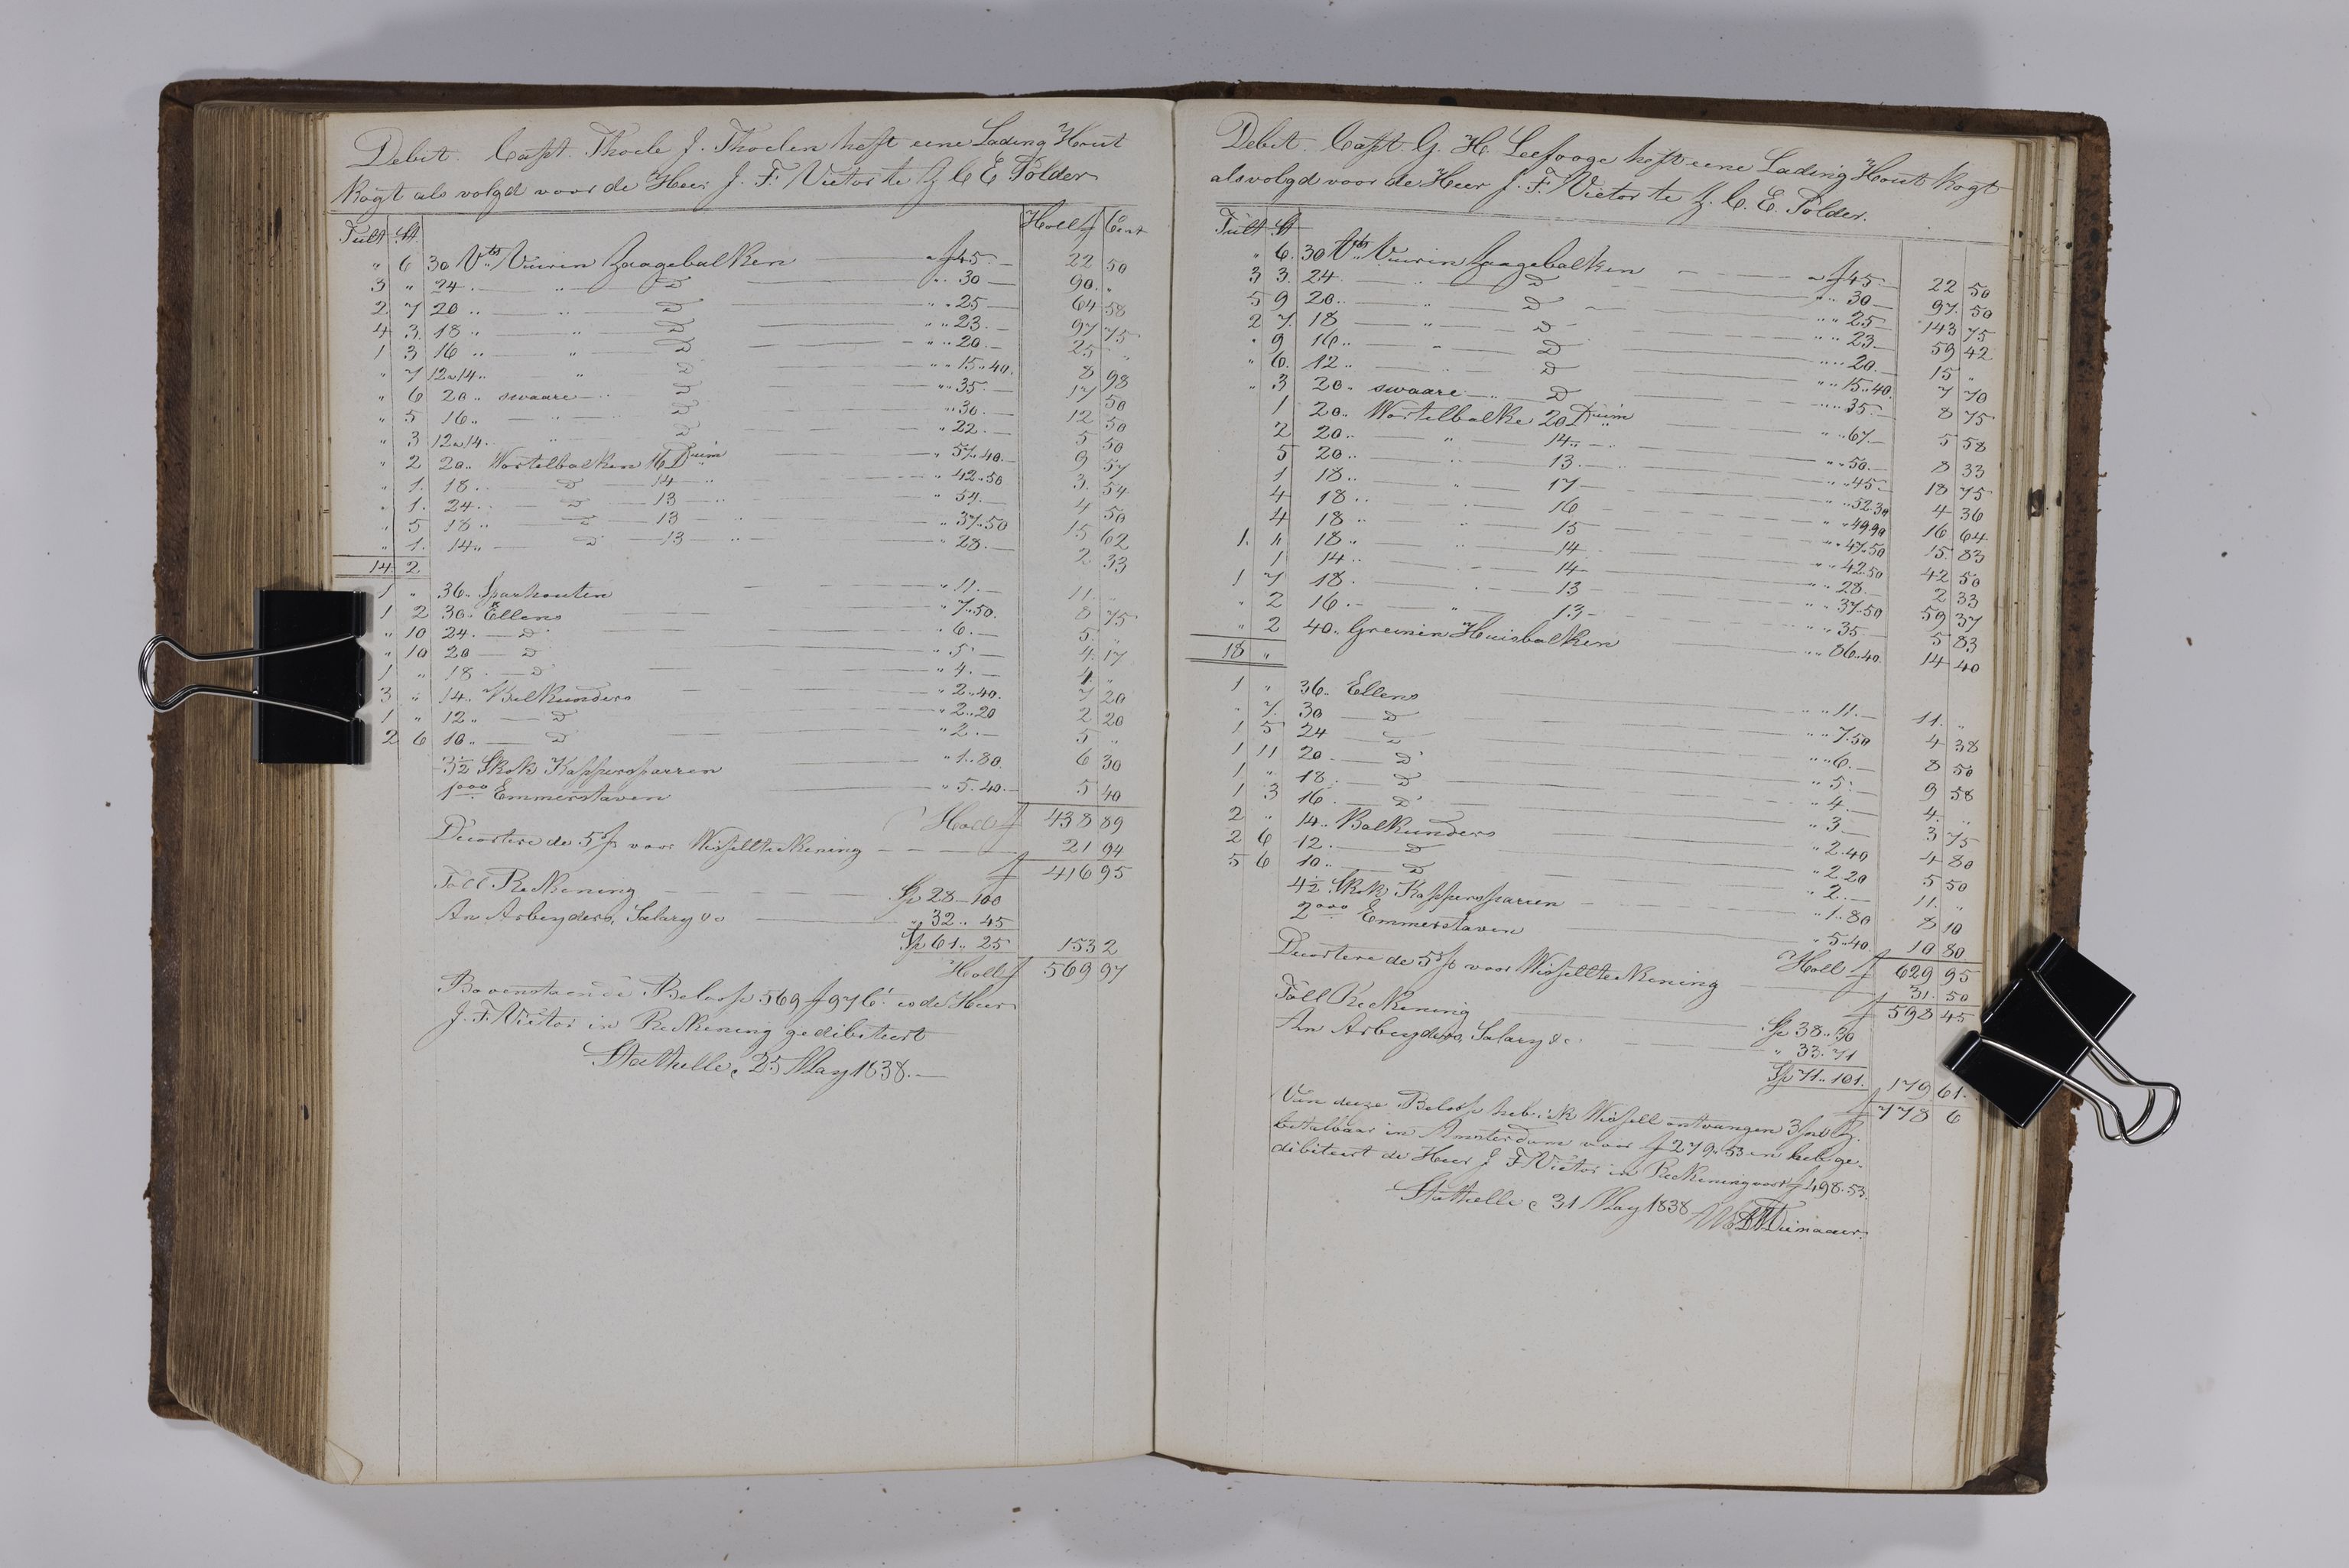 Debit. Capt. Thoele J. Thoelen heft eene Lading Hout
Kogt als volgd voor de Heer J. F. Victor te Z C E Polder
Tult St Holl f Cent
" 6 30 Vts Vuiren Zaagebalken " f 45.— 22 50
3 " 24 .— " D " 30 — 90. "
2 7 20 .. " D " 25 — 64 58
4 3 18 .. " D " 23.— 97 75
1 3 16 .. " D " 20.— 25 "
" 7 12 a 14 .. " D " 15..40. 8 98
" 6 20 .. swaare — D " 35.— 17 50
" 5 16 .. — D " 30.— 12 50
" 3 12 a 14. — D " 22.— 5 50
" 2 20 .. Wortelbalken 16 Duim " 57..40.— 9 57
" 1. 18 .. D — 14 — " " 42..50 3. 54
" 1. 24 .. D — 13 — " " 54.— 4 50
" 5 18 .. D — 13 — " " 37..50 15 62
" 1. 14 .. D — 13 — " " 28.— 2 33
14 2
1 " 36 .. Sparhouten " 11.— 11. "
1 2 30 .. Ellens " 7..50. 8 75
" 10 24 .— D " 6.— 5. "
" 10 20 — D " 5.— 4. 17
1 " 18 .— D " 4.— 4. "
3 " 14 .. Balkunders " 2..40. 7 20
1 " 12 .. — D " 2..20 2 20
2 6 10 .. — D " 2.— 5 "
3½ Skok Kappersparren " 1..80. 6 30
1000 Emmerstaven " 5..40.— 5 40
Holl f 438 89
Decortere de 5 pf voor Wissellteekening — 21 94
f 416 95
Toll Reckening — Sp 28 — 100
An Arbeyders, Salary &c — " 32 .. 45
Sp 61 .. 25 153 2
Holl f 569 97
Bovenstaende Beloop 569 f 97 C. is de Heer
J. F. Victor in Reckening gedibiteert
Stathelle, 25 May 1838.—
Debit. Capt. G. H. Leefooge heft eene Lading Hout kogt
als volgd voor de Heer J. F. Victor te Z. C. E. Polder.
Tult St
" 6. 30 Vts Vuiren Zaagebalken — " f 45.— 22 50
3 3. 24 .. " D " " 30 — 97. 50
5 9 20 .. " D " " 25 — 143 75
2 7. 18 — " D " " 23 — 59 42
" 9 16 .. " D " " 20.— 15 "
" 6. 12 .. " D " " 15..40. 7 70
" 3 20 .. swaare — " D " " 35.— 8 75
1 20 .. Wortelbalke 20 Duim " " 67.— 5 58
2 20 .. " 14 .. " " 50.— 8 33
5 20 .. " 13 .— " " 45.— 18 75
1 18 .. " 17 — " " 52.30 4 36
4 18 .. " 16 " " 49.90 16 64
4 18 .. " 15 " " 47..50 15. 83
1. " 18 .. " 14 " " 42.50 42 50
1 14 .. " 14 " " 28.— 2 33
1 7 18 . " 13 " " 37..50 59 37
" 2 16 .. " 13 — " " 35 5 83
" 2 40 .. Greinen Huisbalken " " 86..40. 14 40
18 "
1 " 36 .. Ellens " " 11.— 11. "
" 7. 30 — D " " 7.50 4 38
1 5 24 — D " " 6.— 8 50
1 11 20 .— D " 5.— 9 58
1 " 18 .— D " 4.— 4. "
1 3 16 .— D " 3.— 3 75
2 " 14 .. Balkunders " 2.40 4 80
2 6 12 .— D " 2.20 5 50
5 6 10 .. — D " 2.— 11. "
4½ Skok Kappersparren — " 1..80 8 10
2000 Emmerstaven " 5..40. 10 80
Holl f 629 95
Decortere de 5 pf voor Wissellteekening — 31. 50
f 598 45
Toll Reckening — Sp 38..30
An Arbeyders, Salary &c. — " 33.71
Sp 71..101. 179 61.
f 778 6
Van deeze Beloop heb ick Wissell ontvangen
betalbaar in Amsterdam voor f 279..53 en heb ge-
dibiteert de Heer J F Victor in Reckening voor f 498.53.
Stathelle 31 May 1838